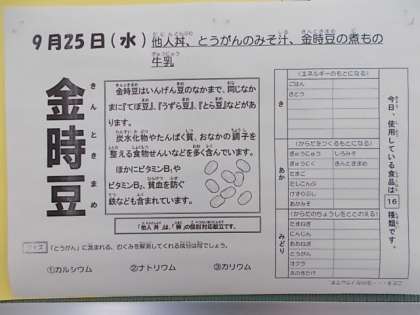 9月25日(水) 他人丼、とうがんのみそ汁、金時豆の煮もの
牛乳
金時豆
きんときまめ
金時豆はいんげん豆のなかまで、同じなか
まに『てぼ豆』、『うずら豆』、『とら豆』などがあり
ます。
炭水化物やたんぱく質、おなかの調子を
整える食物せんいなどを多く含んでいます。
ほかにビタミンB₁や
ビタミンB₂、貧血を防ぐ
鉄なども含まれています。
クイズ 「とうがん」に含まれる、むくみを解消してくれる成分は何でしょう。
①カルシウム ②ナトリウム ③カリウム
今日、使用している食品は16種類です。
き
(エネルギーのもとになる)
ごはん
さとう
あか
(からだをつくるもとになる)
ぎゅうにゅう しろみそ
ぎゅうにく きんときまめ
たまご
あかみそ
みどり
(からだのちょうしをととのえる)
たまねぎ
にんじん
とうがん